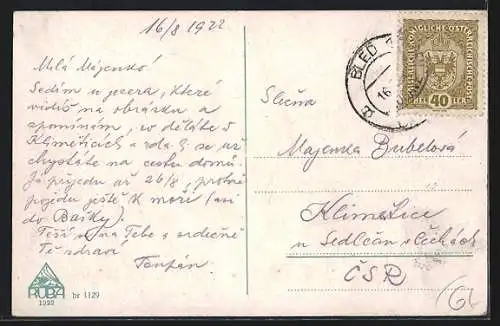 16/8 1922
Milá Májenko!
Sedím u jezera, které
vidíš na obrázku a
vzpomínám, co děláte v
Kliměticích a zda se už
chystáte na cestu domů.
Já přijedu až 26/8, protože
pojedu ještě k moři (asi
do Bašky)
Těší se na Tebe a srdečně
Tě zdraví
RUDA
1922
br 1129
BLED
16
KAISERLICHE KÖNIGLICHE ÖSTERREICHISCHE POST
40
HELLER
Slečna
Majenka Bubelová
Klimětice
u Sedlčan v Čechách
ČSR